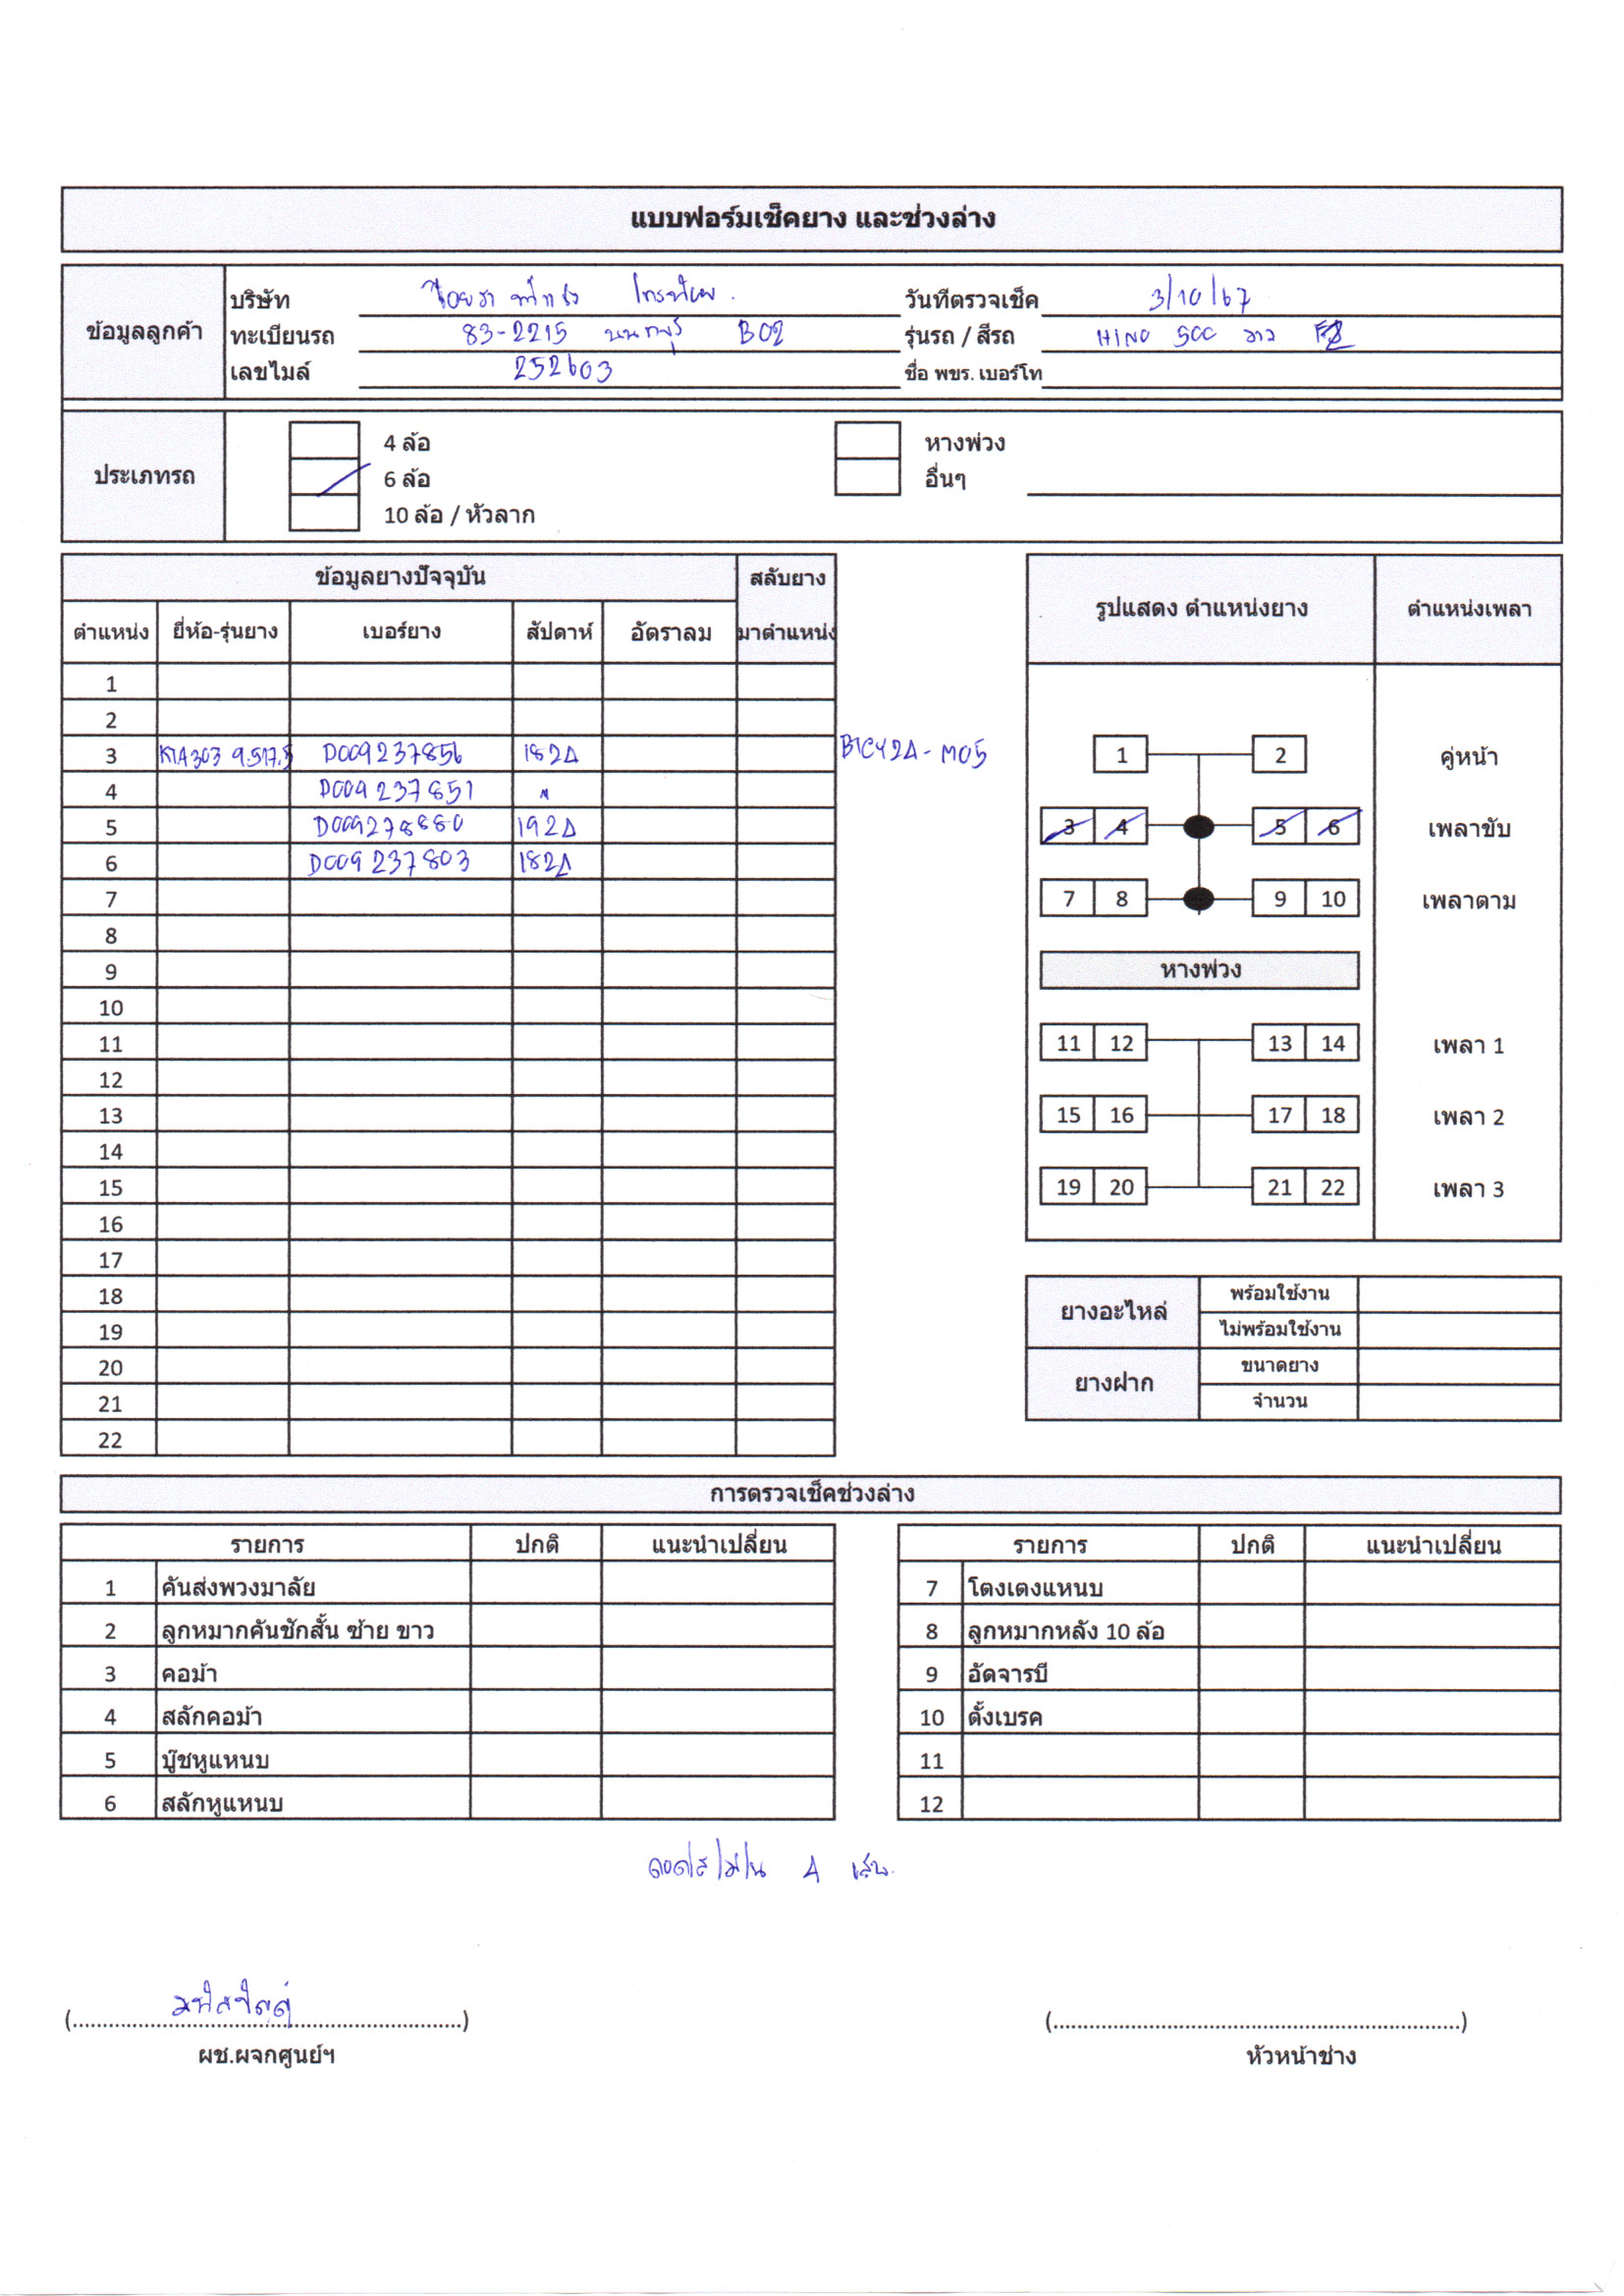 แบบฟอร์มเช็คยาง และช่วงล่าง
ข้อมูลลูกค้า
บริษัท
วันที่ตรวจเช็ค 3/10/67
ทะเบียนรถ 83-2215 นนทบุรี B02
รุ่นรถ / สีรถ HINO 500 ขาว
เลขไมล์ 252603
ชื่อ พขร. เบอร์โท
ประเภทรถ
4 ล้อ
หางพ่วง
6 ล้อ
อื่นๆ
10 ล้อ / หัวลาก
ข้อมูลยางปัจจุบัน สลับยาง
ตำแหน่ง ยี่ห้อ-รุ่นยาง เบอร์ยาง สัปดาห์ อัตราลม มาตำแหน่ง
1
2
3 KTA303 9.517.5 D009237856 1824
4 D009237851 "
5 D009278880 1924
6 D009237803 1824
7
8
9
10
11
12
13
14
15
16
17
18
19
20
21
22
รูปแสดง ตำแหน่งยาง ตำแหน่งเพลา
1 2 คู่หน้า
3 4 5 6 เพลาขับ
7 8 9 10 เพลาตาม
หางพ่วง
11 12 13 14 เพลา 1
15 16 17 18 เพลา 2
19 20 21 22 เพลา 3
ยางอะไหล่ พร้อมใช้งาน
ไม่พร้อมใช้งาน
ยางฝาก ขนาดยาง
จำนวน
การตรวจเช็คช่วงล่าง
รายการ ปกติ แนะนำเปลี่ยน
1 คันส่งพวงมาลัย
2 ลูกหมากคันชักสั้น ซ้าย ขาว
3 คอม้า
4 สลักคอม้า
5 บู๊ชหูแหนบ
6 สลักหูแหนบ
รายการ ปกติ แนะนำเปลี่ยน
7 โตงเตงแหนบ
8 ลูกหมากหลัง 10 ล้อ
9 อัดจารบี
10 ตั้งเบรค
11
12
4 เส้น
(..................................................)
ผช.ผจกศูนย์ฯ
(..................................................)
หัวหน้าช่าง